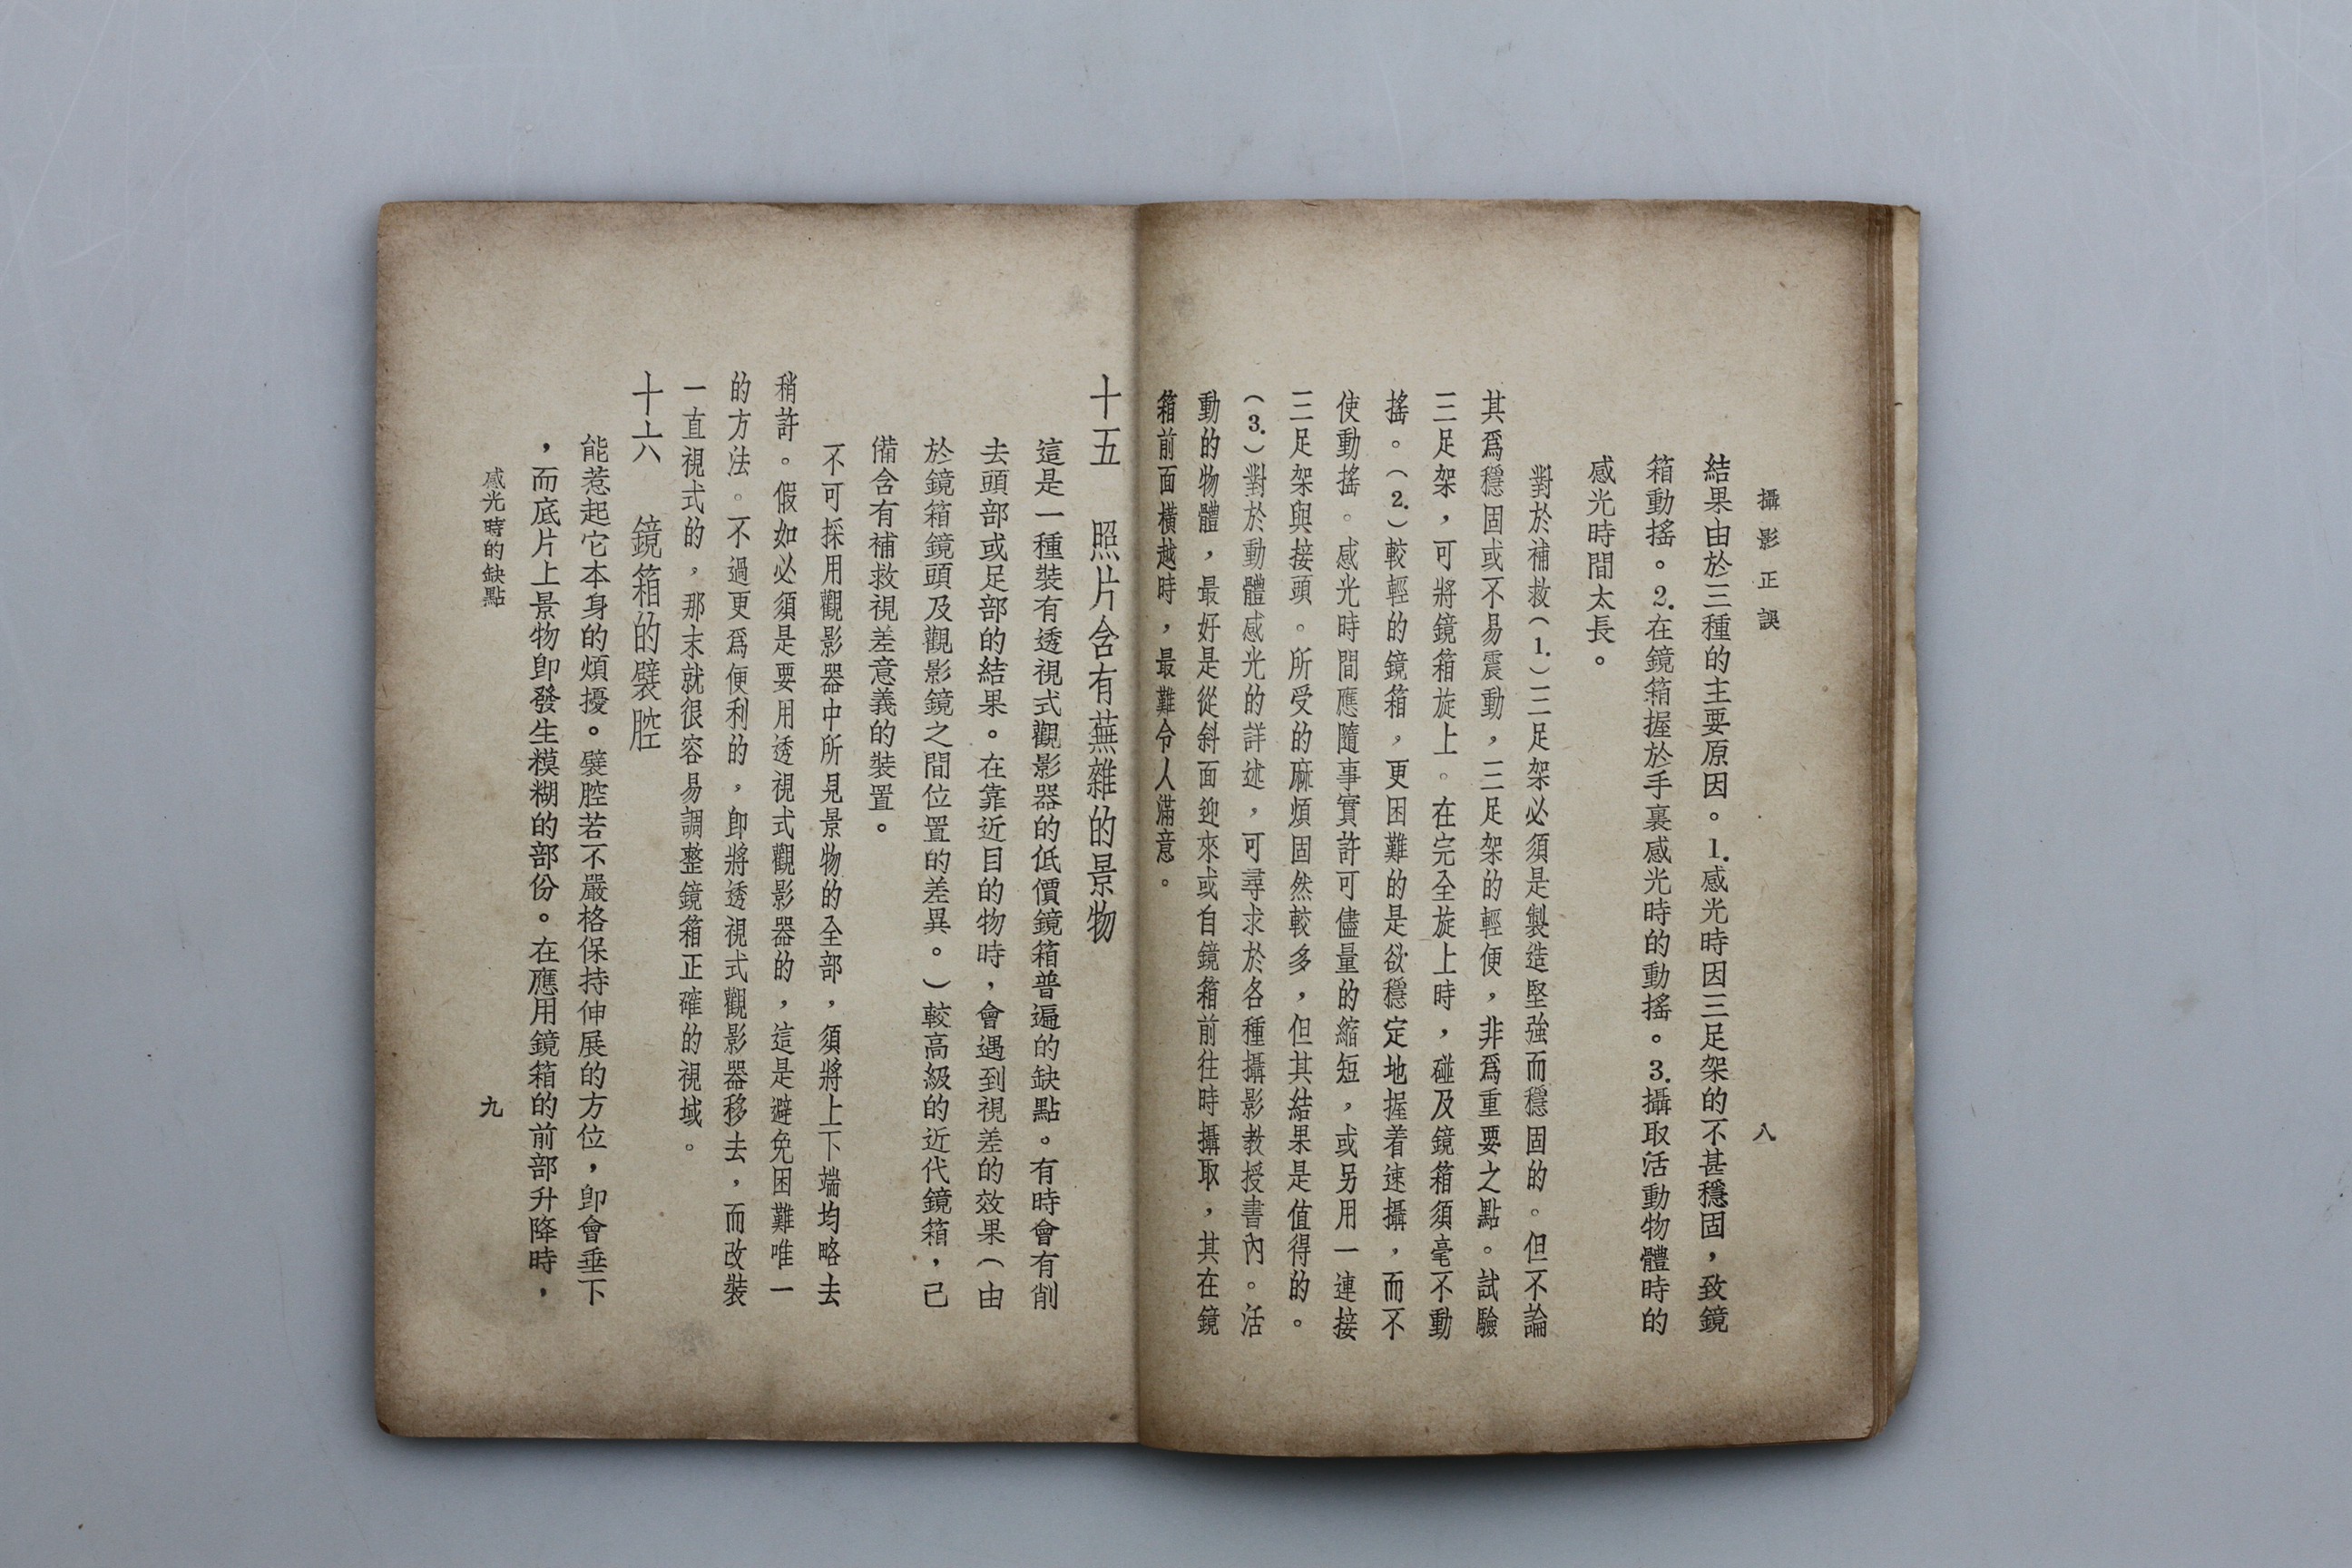 攝影正誤
八
結果由於三種的主要原因。1.感光時因三足架的不甚穩固，致鏡
箱動搖。2.在鏡箱握於手裏感光時的動搖。3.攝取活動物體時的
感光時間太長。
對於補救（1.）三足架必須是製造堅強而穩固的。但不論
其爲穩固或不易震動，三足架的輕便，非爲重要之點。試驗
三足架，可將鏡箱旋上。在完全旋上時，碰及鏡箱須毫不動
搖。（2.）較輕的鏡箱，更困難的是欲穩定地握着速攝，而不
使動搖。感光時間應隨事實許可儘量的縮短，或另用一連接
三足架與接頭。所受的麻煩固然較多，但其結果是值得的。
（3.）對於動體感光的詳述，可尋求於各種攝影教授書內。活
動的物體，最好是從斜面迎來或自鏡箱前往時攝取，其在鏡
箱前面橫越時，最難令人滿意。
十五　照片含有蕪雜的景物
這是一種裝有透視式觀影器的低價鏡箱普遍的缺點。有時會有削
去頭部或足部的結果。在靠近目的物時，會遇到視差的效果（由
於鏡箱鏡頭及觀影鏡之間位置的差異。）較高級的近代鏡箱，己
備含有補救視差意義的裝置。
不可採用觀影器中所見景物的全部，須將上下端均略去
稍許。假如必須是要用透視式觀影器的，這是避免困難唯一
的方法。不過更爲便利的，卽將透視式觀影器移去，而改裝
一直視式的，那末就很容易調整鏡箱正確的視域。
十六　鏡箱的襞腔
能惹起它本身的煩擾。襞腔若不嚴格保持伸展的方位，卽會垂下
，而底片上景物卽發生模糊的部份。在應用鏡箱的前部升降時，
感光時的缺點
九